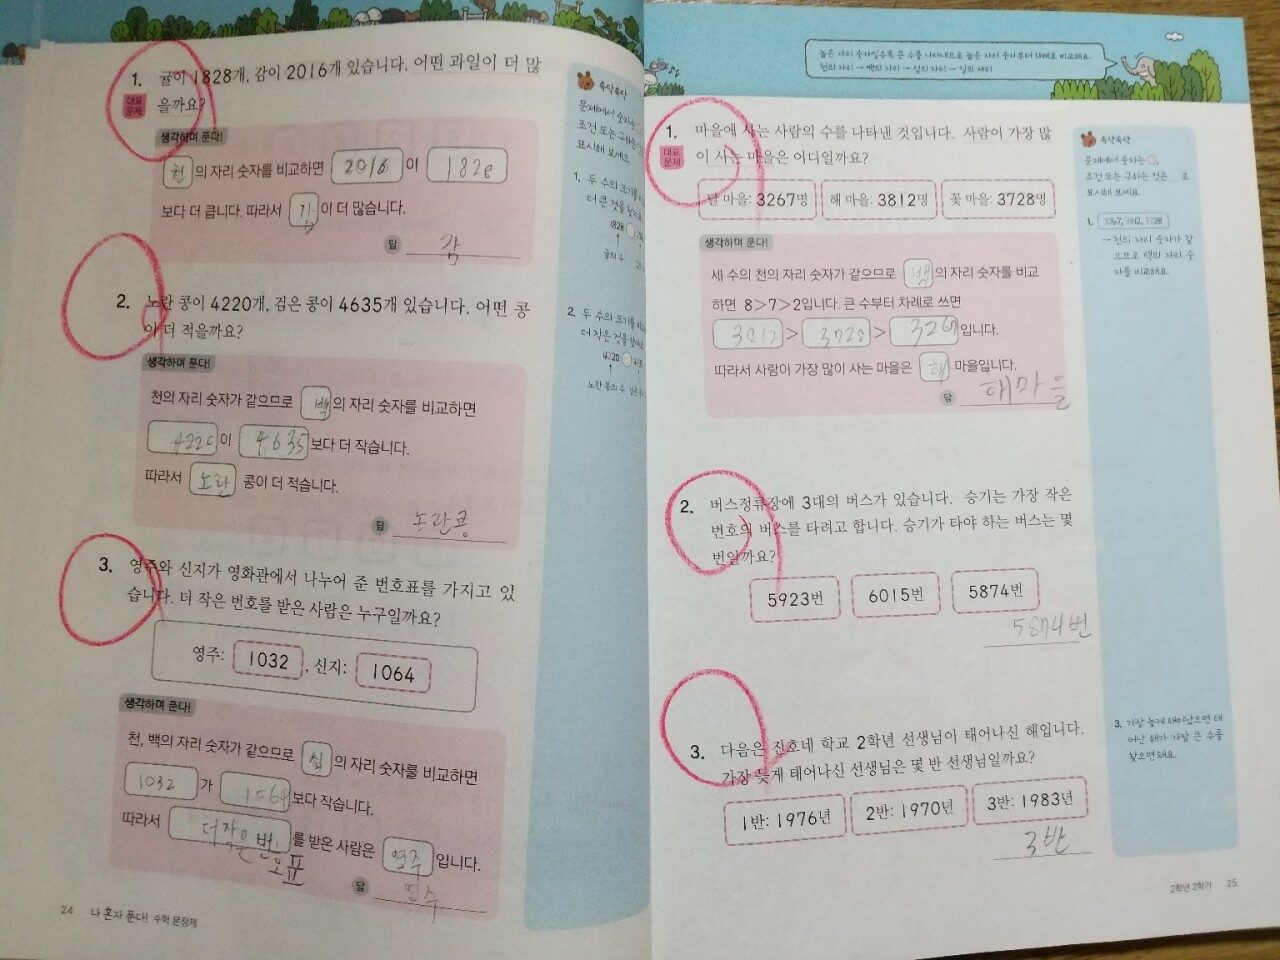 1. 귤이 1828개, 감이 2016개 있습니다. 어떤 과일이 더 많
대표 문제
을까요?
생각하며 푼다!
천 의 자리 숫자를 비교하면 2016 이 1828
보다 더 큽니다. 따라서 감 이 더 많습니다.
답 감
2. 노란 콩이 4220개, 검은 콩이 4635개 있습니다. 어떤 콩
이 더 적을까요?
생각하며 푼다!
천의 자리 숫자가 같으므로 백 의 자리 숫자를 비교하면
4220 이 4635 보다 더 작습니다.
따라서 노란 콩이 더 적습니다.
답 노란콩
3. 영주와 신지가 영화관에서 나누어 준 번호표를 가지고 있
습니다. 더 작은 번호를 받은 사람은 누구일까요?
영주: 1032 , 신지: 1064
생각하며 푼다!
천, 백의 자리 숫자가 같으므로 십 의 자리 숫자를 비교하면
1032 가 1064 보다 작습니다.
따라서 더작은 번호표 를 받은 사람은 영주 입니다.
답 영주
24 나 혼자 푼다! 수학 문장제
속닥속닥
문제에서 숫자는
조건 또는 구하는
표시해 보세요.
1. 두 수의 크기를
더 큰 것을
1828
귤의 수
2. 두 수의 크기를
더 작은 것을
4220
노란 콩의 수
높은 자리 숫자일수록 큰 수를 나타내므로 높은 자리 숫자부터 차례로 비교해요.
천의 자리 → 백의 자리 → 십의 자리 → 일의 자리
1. 마을에 사는 사람의 수를 나타낸 것입니다. 사람이 가장 많
대표 문제
이 사는 마을은 어디일까요?
달 마을: 3267명 해 마을: 3812명 꽃 마을: 3728명
생각하며 푼다!
세 수의 천의 자리 숫자가 같으므로 백 의 자리 숫자를 비교
하면 8>7>2입니다. 큰 수부터 차례로 쓰면
3812 > 3728 > 3267 입니다.
따라서 사람이 가장 많이 사는 마을은 해 마을입니다.
답 해마을
2. 버스정류장에 3대의 버스가 있습니다. 승기는 가장 작은
번호의 버스를 타려고 합니다. 승기가 타야 하는 버스는 몇
번일까요?
5923번 6015번 5874번
5874번
3. 다음은 진호네 학교 2학년 선생님이 태어나신 해입니다.
가장 늦게 태어나신 선생님은 몇 반 선생님일까요?
1반: 1976년 2반: 1970년 3반: 1983년
3반
속닥속닥
문제에서 숫자는 ○,
조건 또는 구하는 것은 __로
표시해 보세요.
1. 3267, 3812, 3728
→ 천의 자리 숫자가 같
으므로 백의 자리 숫
자를 비교해요.
3. 가장 늦게 태어났으면 태
어난 해가 가장 큰 수를
찾으면 돼요.
2학년 2학기 25